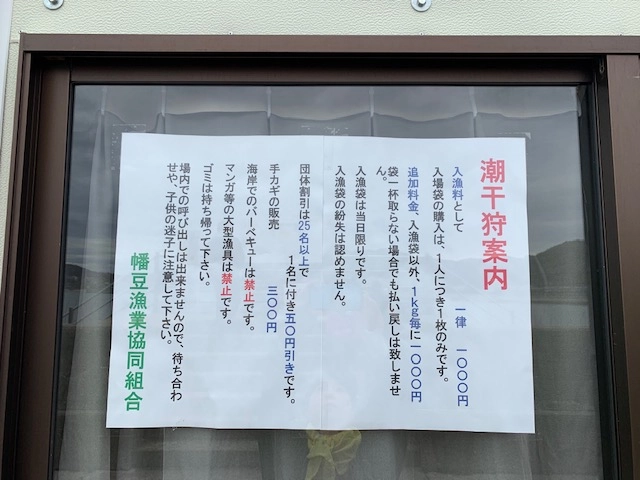 潮干狩案内
入漁料として　一律　一〇〇〇円
入場袋の購入は、1人につき1枚のみです。
追加料金、入漁袋以外、1kg毎に一〇〇〇円
袋一杯取らない場合でも払い戻しは致しませ
ん。
入漁袋は当日限りです。
入漁袋の紛失は認めません。
団体割引は25名以上で
1名に付き五〇円引きです。
手カギの販売　三〇〇円
海岸でのバーベキューは禁止です。
マンガ等の大型漁具は禁止です。
ゴミは持ち帰って下さい。
場内での呼び出しは出来ませんので、待ち合わ
せや、子供の迷子に注意して下さい。
幡豆漁業協同組合